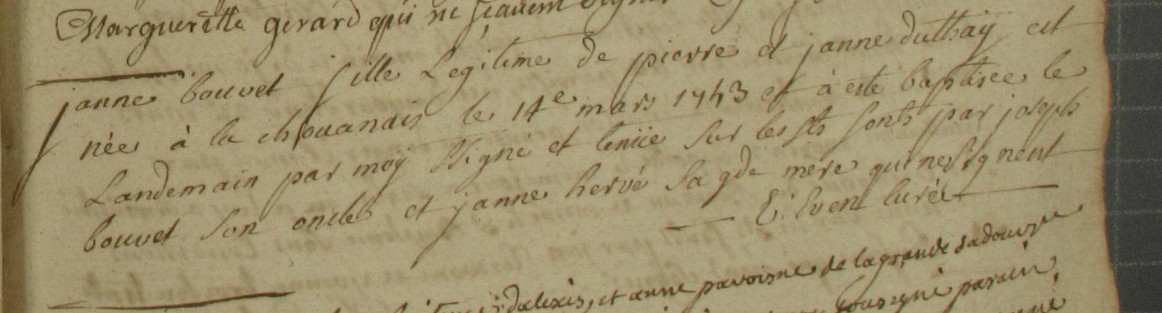 Margueritte gerard qui ne scavent signer
janne bouvet fille Legitime de pierre et janne duthay est
née à la chouanais le 14e mars 1743 et à été baptisee le
Landemain par moy ssigné et tenüe sur les sts fonts par joseph
bouvet son oncle et janne hervé sa gde mere qui ne signent
curé
et anne pavoisne de la grande
sousigné parain